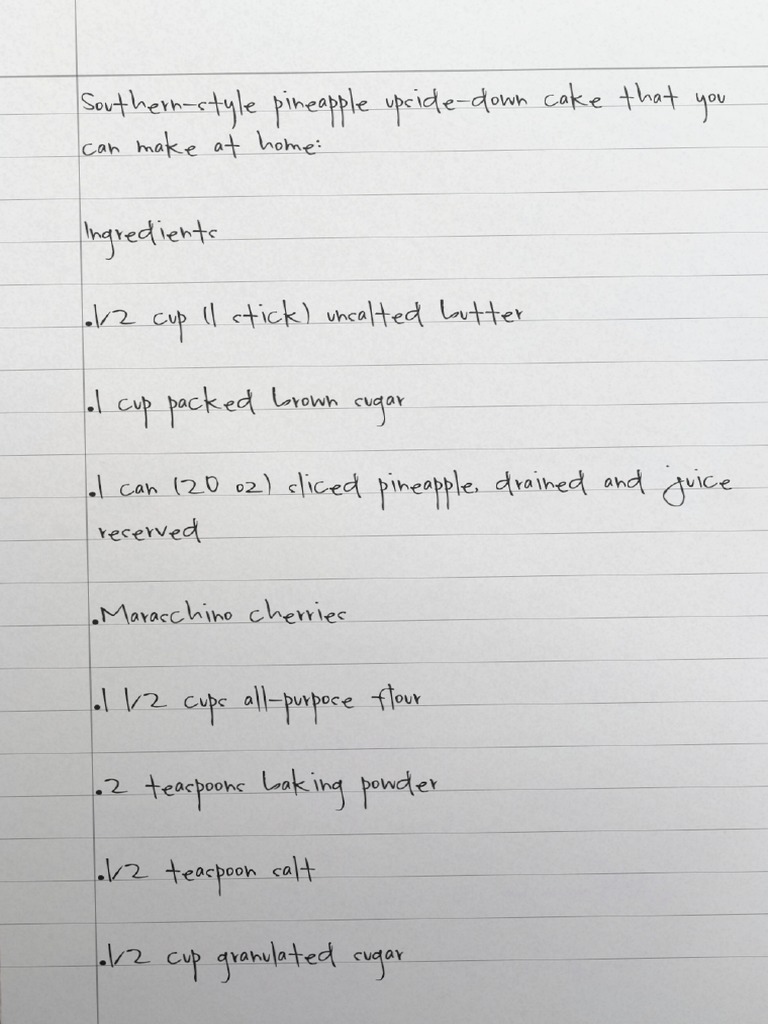 Southern-style pineapple upside-down cake that you
can make at home:
Ingredients
.1/2 cup (1 stick) unsalted butter
.1 cup packed brown sugar
.1 can (20 oz) sliced pineapple, drained and juice
reserved
.Maraschino cherries
.1 1/2 cups all-purpose flour
.2 teaspoons baking powder
.1/2 teaspoon salt
.1/2 cup granulated sugar